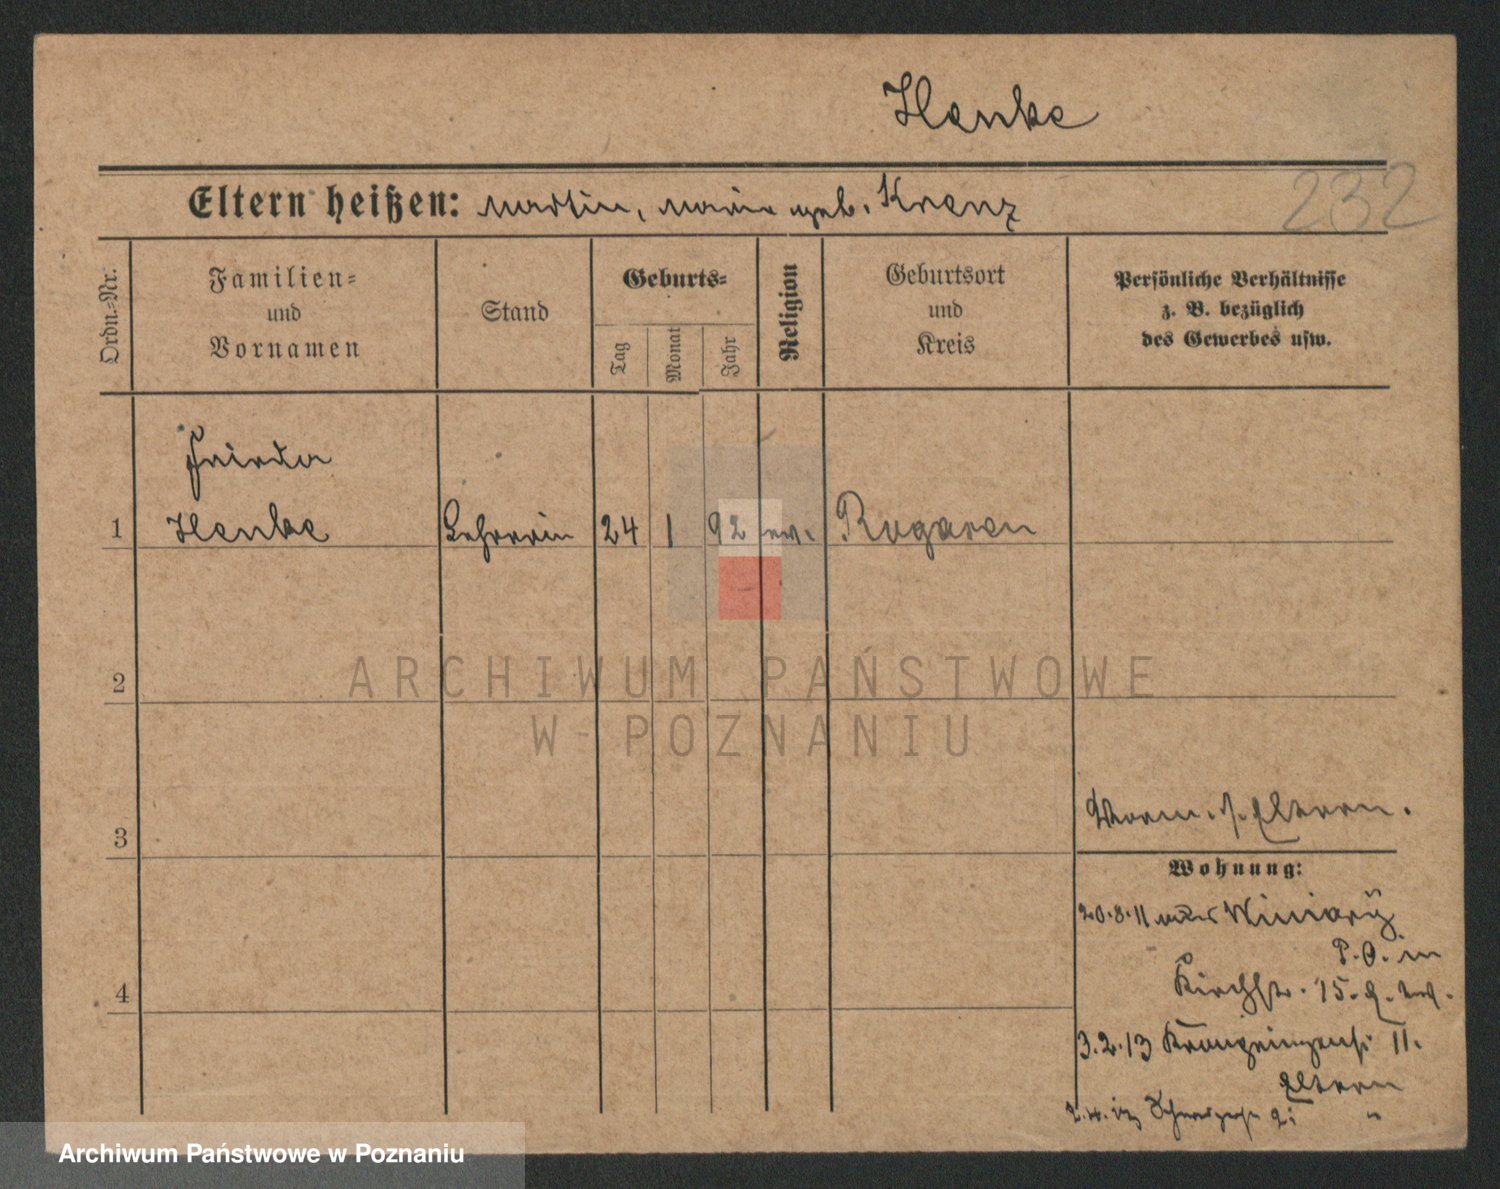 Henke
232
Eltern heißen: Martin, Marie geb. Krenz
Ordn.-Nr.
Familien-
und
Vornamen
Stand
Geburts-
Tag
Monat
Jahr
Religion
Geburtsort
und
Kreis
Persönliche Verhältnisse
z. B. bezüglich
des Gewerbes usw.
Frieda
1 Henke Lehrerin 24 1 92 ev. Rogasen
2
ARCHIWUM PAŃSTWOWE
W POZNANIU
3
Eltern.
Wohnung:
20.8.11 Winiary
P.O. in
4
Kirchstr. 15.
3.2.13 Kronprinzenstr. 11.
Eltern
"
Archiwum Państwowe w Poznaniu